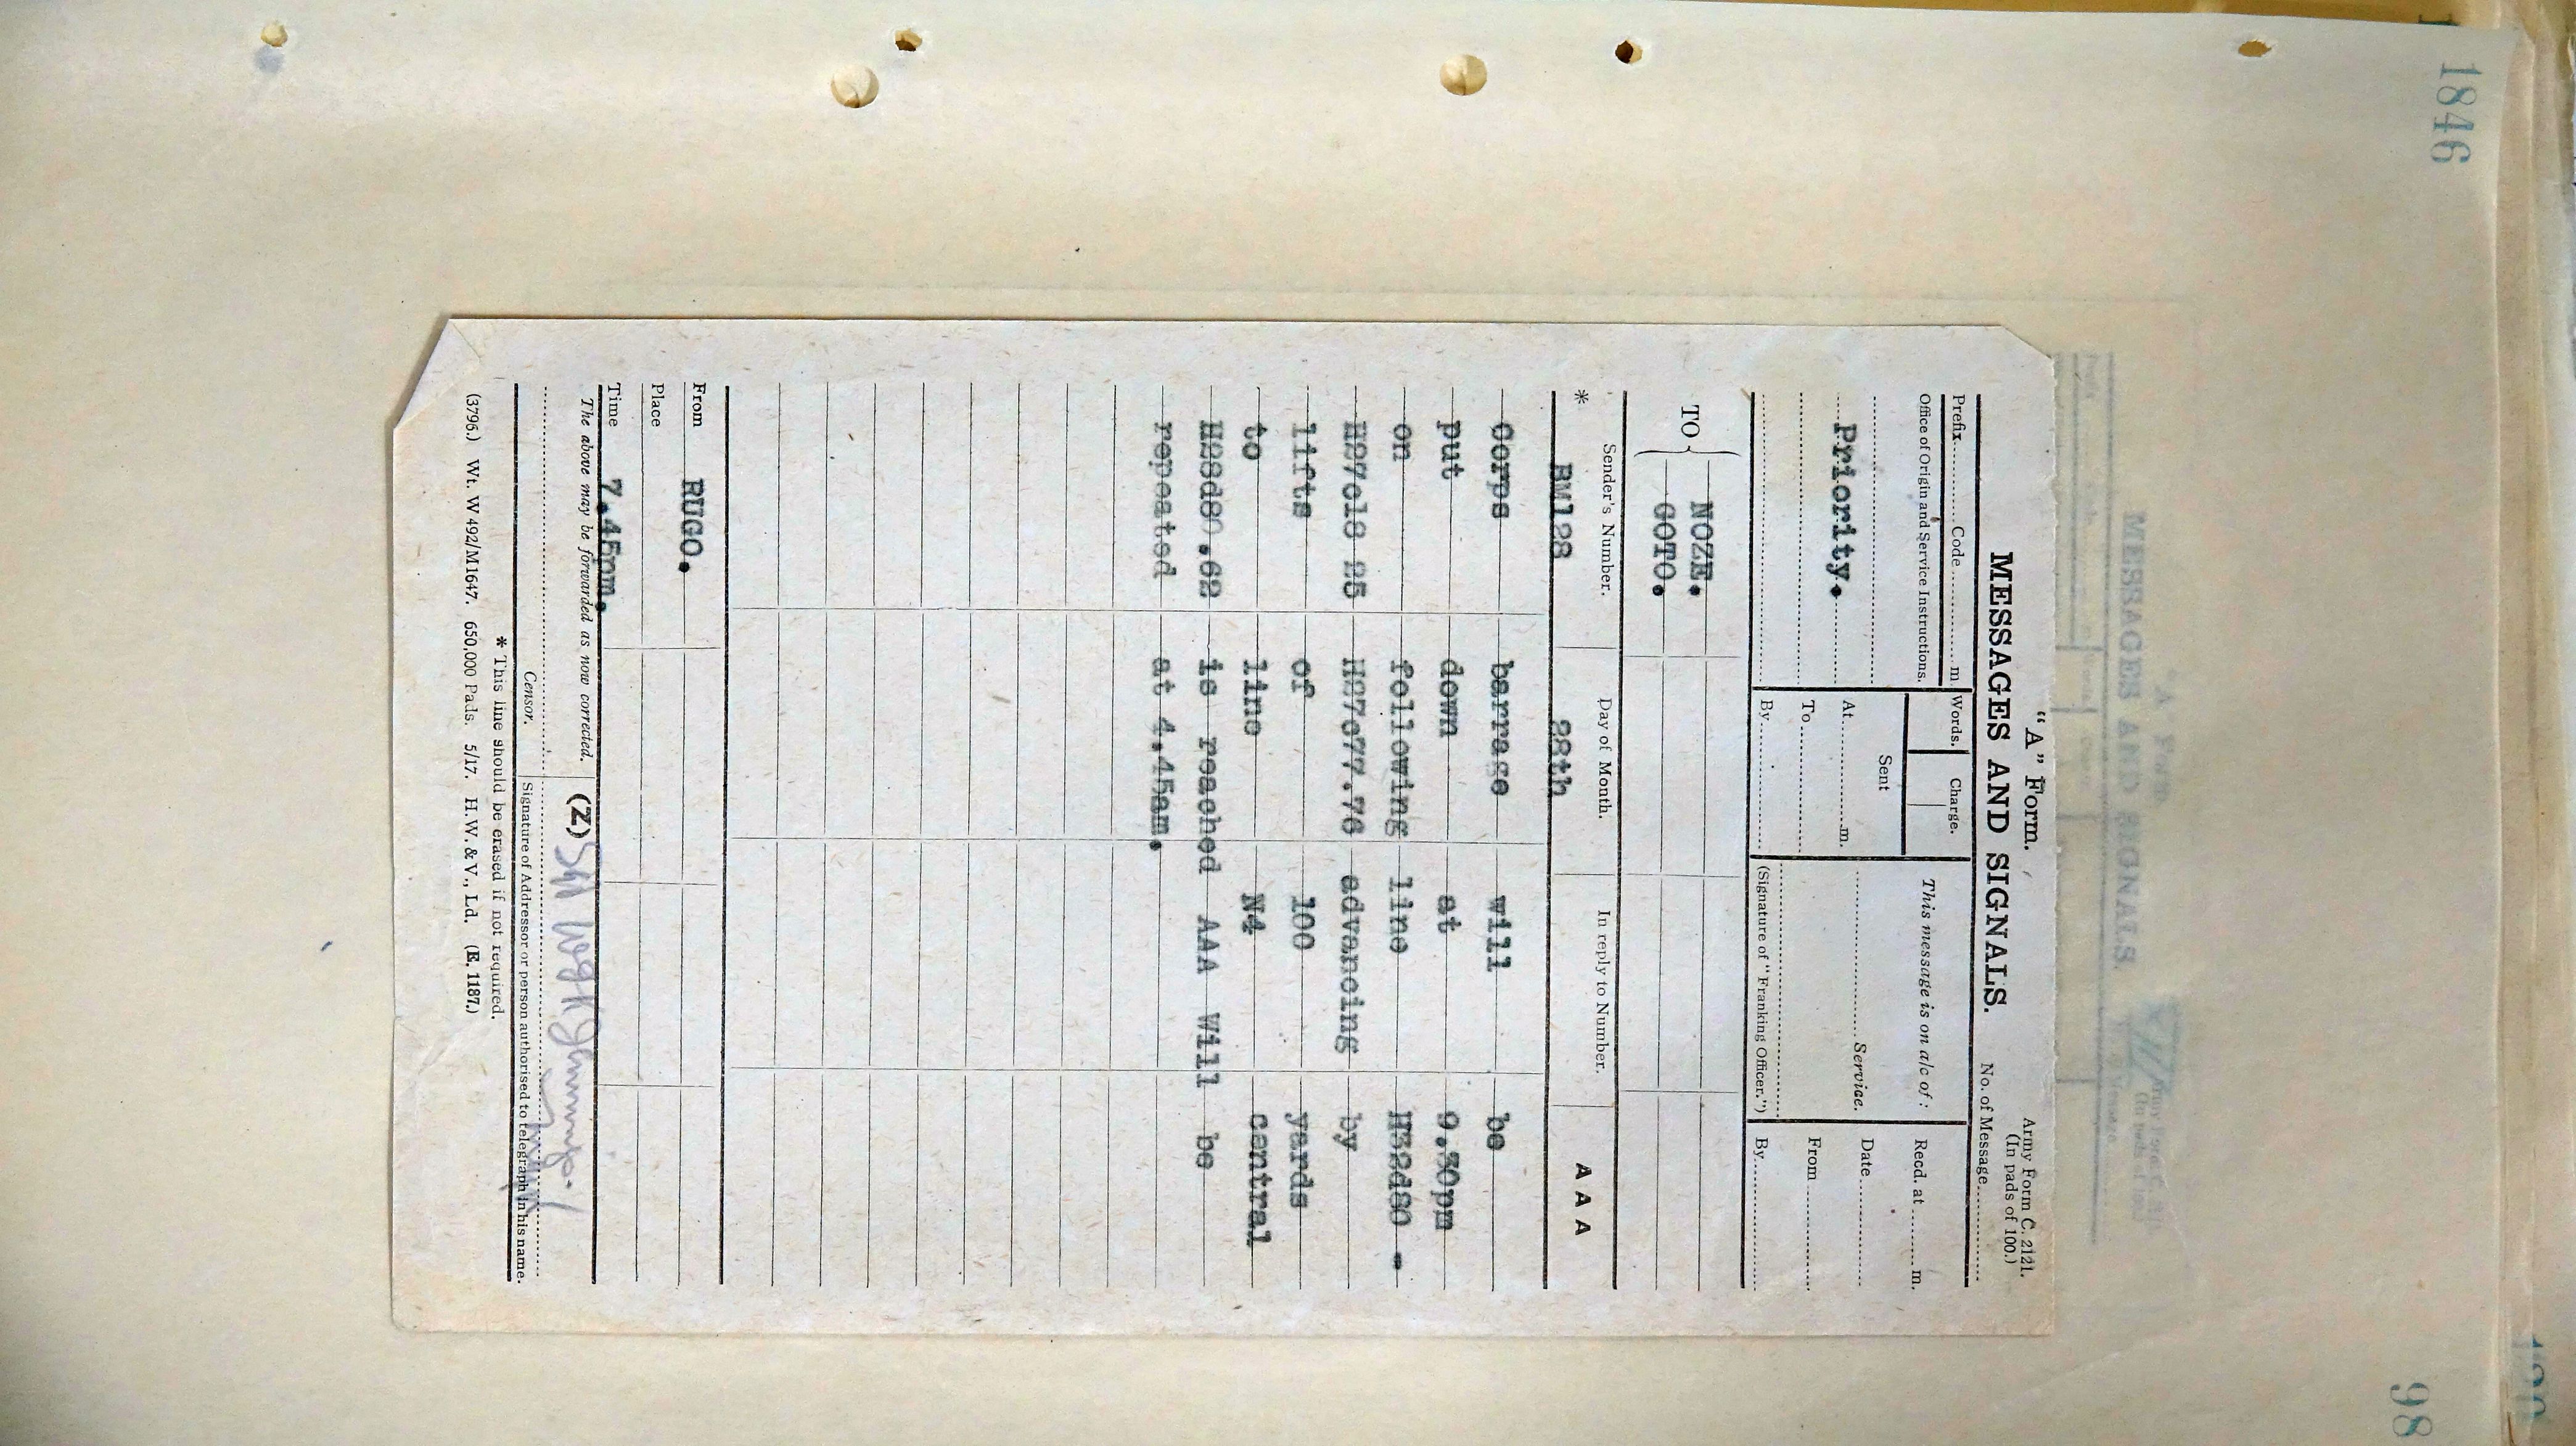 1846
"A" Form.
Army Form C. 2121.
(In pads of 100.)
MESSAGES AND SIGNALS.
No. of Message
Prefix Code m.
Words.
Charge.
This message is on a/c of :
Recd. at m.
Office of Origin and Service Instructions.
Sent
Date
Priority.
At m.
Service.
From
To
By
(Signature of "Franking Officer.")
By
TO { NOZE.
GOTO.
* Sender's Number. Day of Month. In reply to Number. A A A
BM128 28th
Corps barrage will be
put down at 9.30pm
on following line H32d80 -
H27c18 25 H27c77.76 advancing by
lifts of 100 yards
to line N4 central
H28d80.62 is reached AAA Will be
repeated at 4.45am.
From RUGO.
Place
Time 7.45pm.
The above may be forwarded as now corrected. (Z)
Censor. Signature of Addressor or person authorised to telegraph in his name.
* This line should be erased if not required.
(3796.) Wt. W 492/M1647. 650,000 Pads. 5/17. H.W. & V., Ld. (E. 1187.)
98